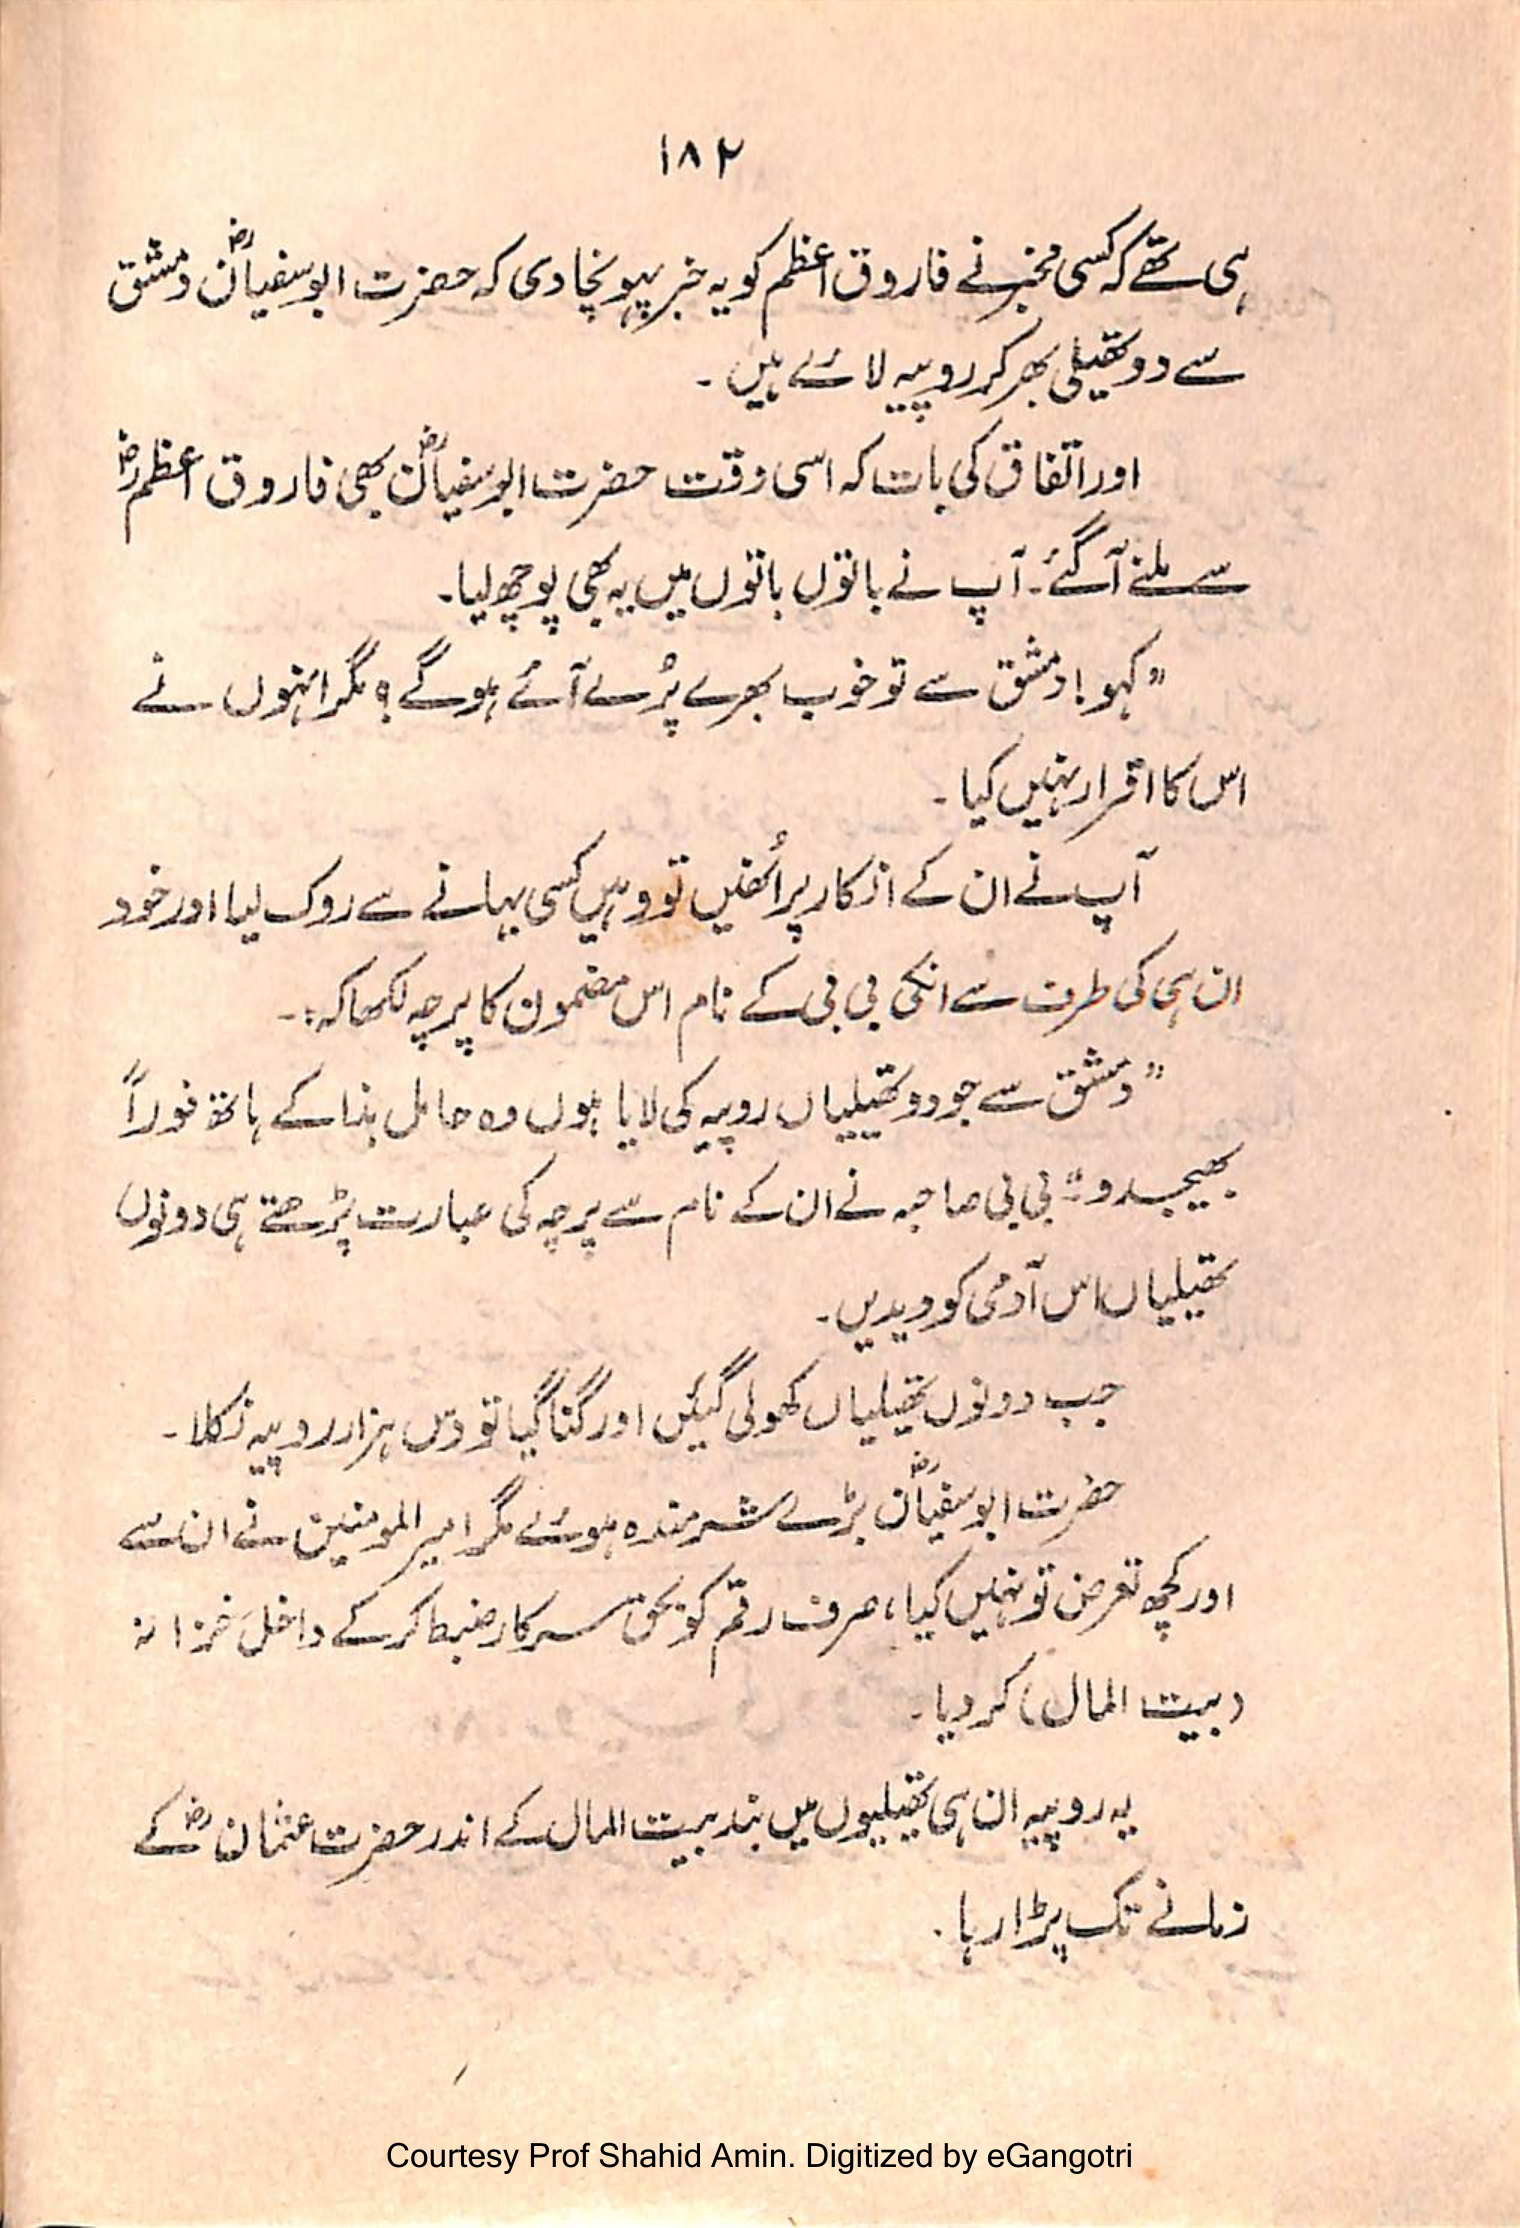 ۱۸۲
ہی تھے کہ کسی مخبر نے فاروق اعظم کو یہ خبر پہونچا دی کہ حضرت ابوسفیانؓ دمشق
سے دو تھیلی بھر کر روپیہ لائے ہیں ۔
اور اتفاق کی بات کہ اسی وقت حضرت ابوسفیانؓ بھی فاروق اعظمؓ
سے ملنے آگئے۔ آپ نے باتوں باتوں میں یہ بھی پوچھ لیا۔
”کہو! دمشق سے تو خوب بھرے پُرے آئے ہوگے؟ مگر انہوں نے
اس کا اقرار نہیں کیا ۔
آپ نے ان کے انکار پر اُنھیں تو وہیں کسی بہانے سے روک لیا اور خود
ان ہی کی طرف سے انکی بی بی کے نام اس مضمون کا پرچہ لکھا کہ:۔
”دمشق سے جو دو تھیلیاں روپیہ کی لایا ہوں وہ حامل ہذا کے ہاتھ فوراً
بھیجدو“ بی بی صاحبہ نے ان کے نام سے پرچہ کی عبارت پڑھتے ہی دونوں
تھیلیاں اس آدمی کو دیدیں۔
جب دونوں تھیلیاں کھولی گئیں اور گنا گیا تو دس ہزار روپیہ نکلا۔
حضرت ابوسفیانؓ بڑے شرمندہ ہوئے مگر امیر المومنین نے ان سے
اور کچھ تعرض تو نہیں کیا، صرف رقم کو بحق سرکار ضبط کرکے داخلَ خزانہ
(بیت المال) کر دیا۔
یہ روپیہ ان ہی تھیلیوں میں بند بیت المال کے اندر حضرت عثمانؓ کے
زمانے تک پڑا رہا ۔
Courtesy Prof Shahid Amin. Digitized by eGangotri